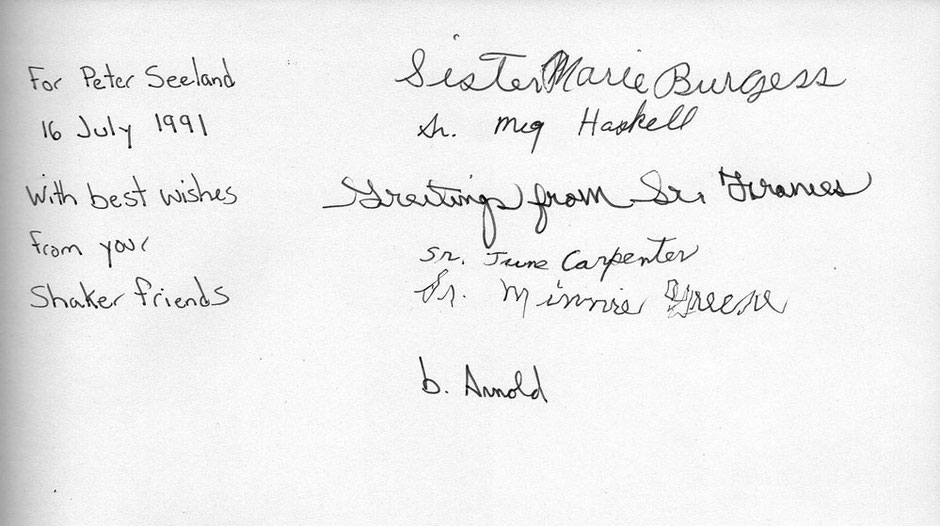 For Peter Seeland
16 July 1991
With best wishes
from your
Shaker friends
Sister Marie Burgess
Sr. Meg Haskell
Greetings from Sr. Frances
Sr. June Carpenter
Sr. Minnie Greene
b. Arnold